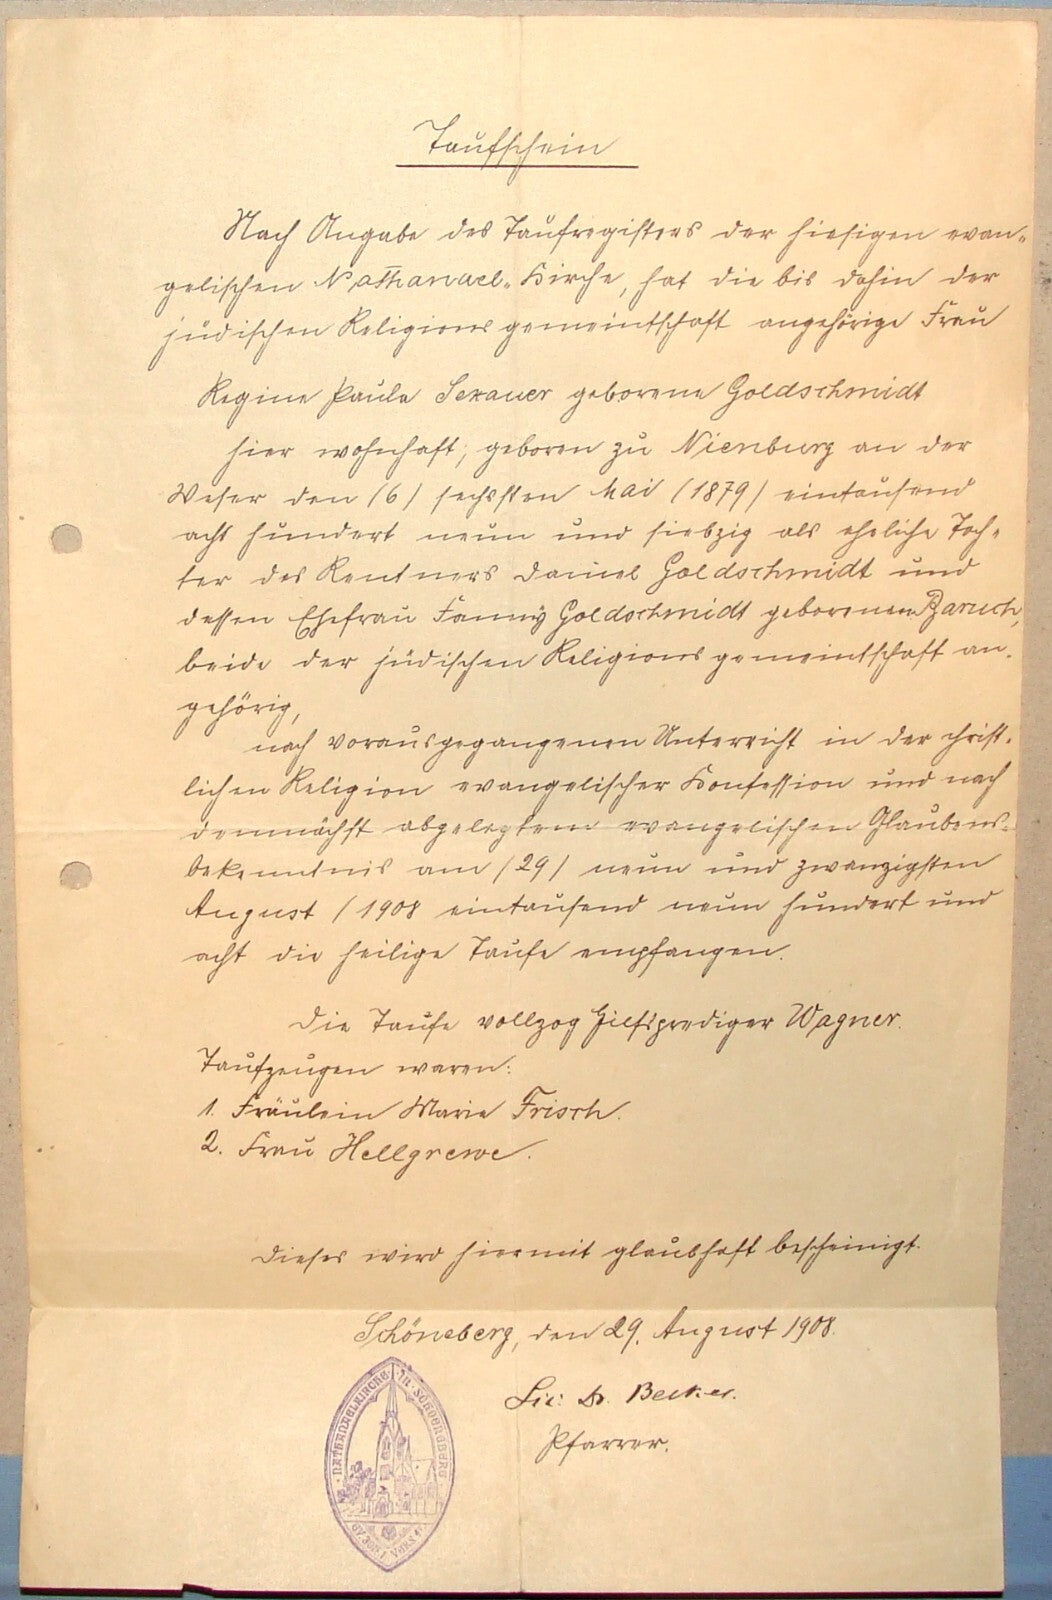 Taufschein
Nach Angabe des Taufregisters der hiesigen evan-
gelischen Nathanael-Kirche, hat die bis dahin der
jüdischen Religionsgemeintschaft angehörige Frau
Regine Paula Sexauer geborene Goldschmidt
hier wohnhaft, geboren zu Nienburg an der
Weser den (6) sechsten Mai (1879) eintausend
acht hundert neun und siebzig als eheliche Toch-
ter des Rentners Daniel Goldschmidt und
dessen Ehefrau Fanny Goldschmidt geborenen Baruch,
beide der jüdischen Religionsgemeintschaft an-
gehörig,
nach vorausgegangenen Unterricht in der christ-
lichen Religion evangelischer Konfession und nach
demnächst abgelegtem evangelischen Glaubens-
bekenntnis am (29) neun und zwanzigsten
August (1908 eintausend neun hundert und
acht die heilige Taufe empfangen.
Die Taufe vollzog Hilfsprediger Wagner.
Taufzeugen waren:
1. Fräulein Marie Frisch.
2. Frau Hellgrewe.
Dieses wird hiermit glaubhaft bescheinigt.
Schöneberg, den 29. August 1908.
Lic. Dr. Becker.
Pfarrer.
NATHANAELKIRCHE IN SCHOENEBERG